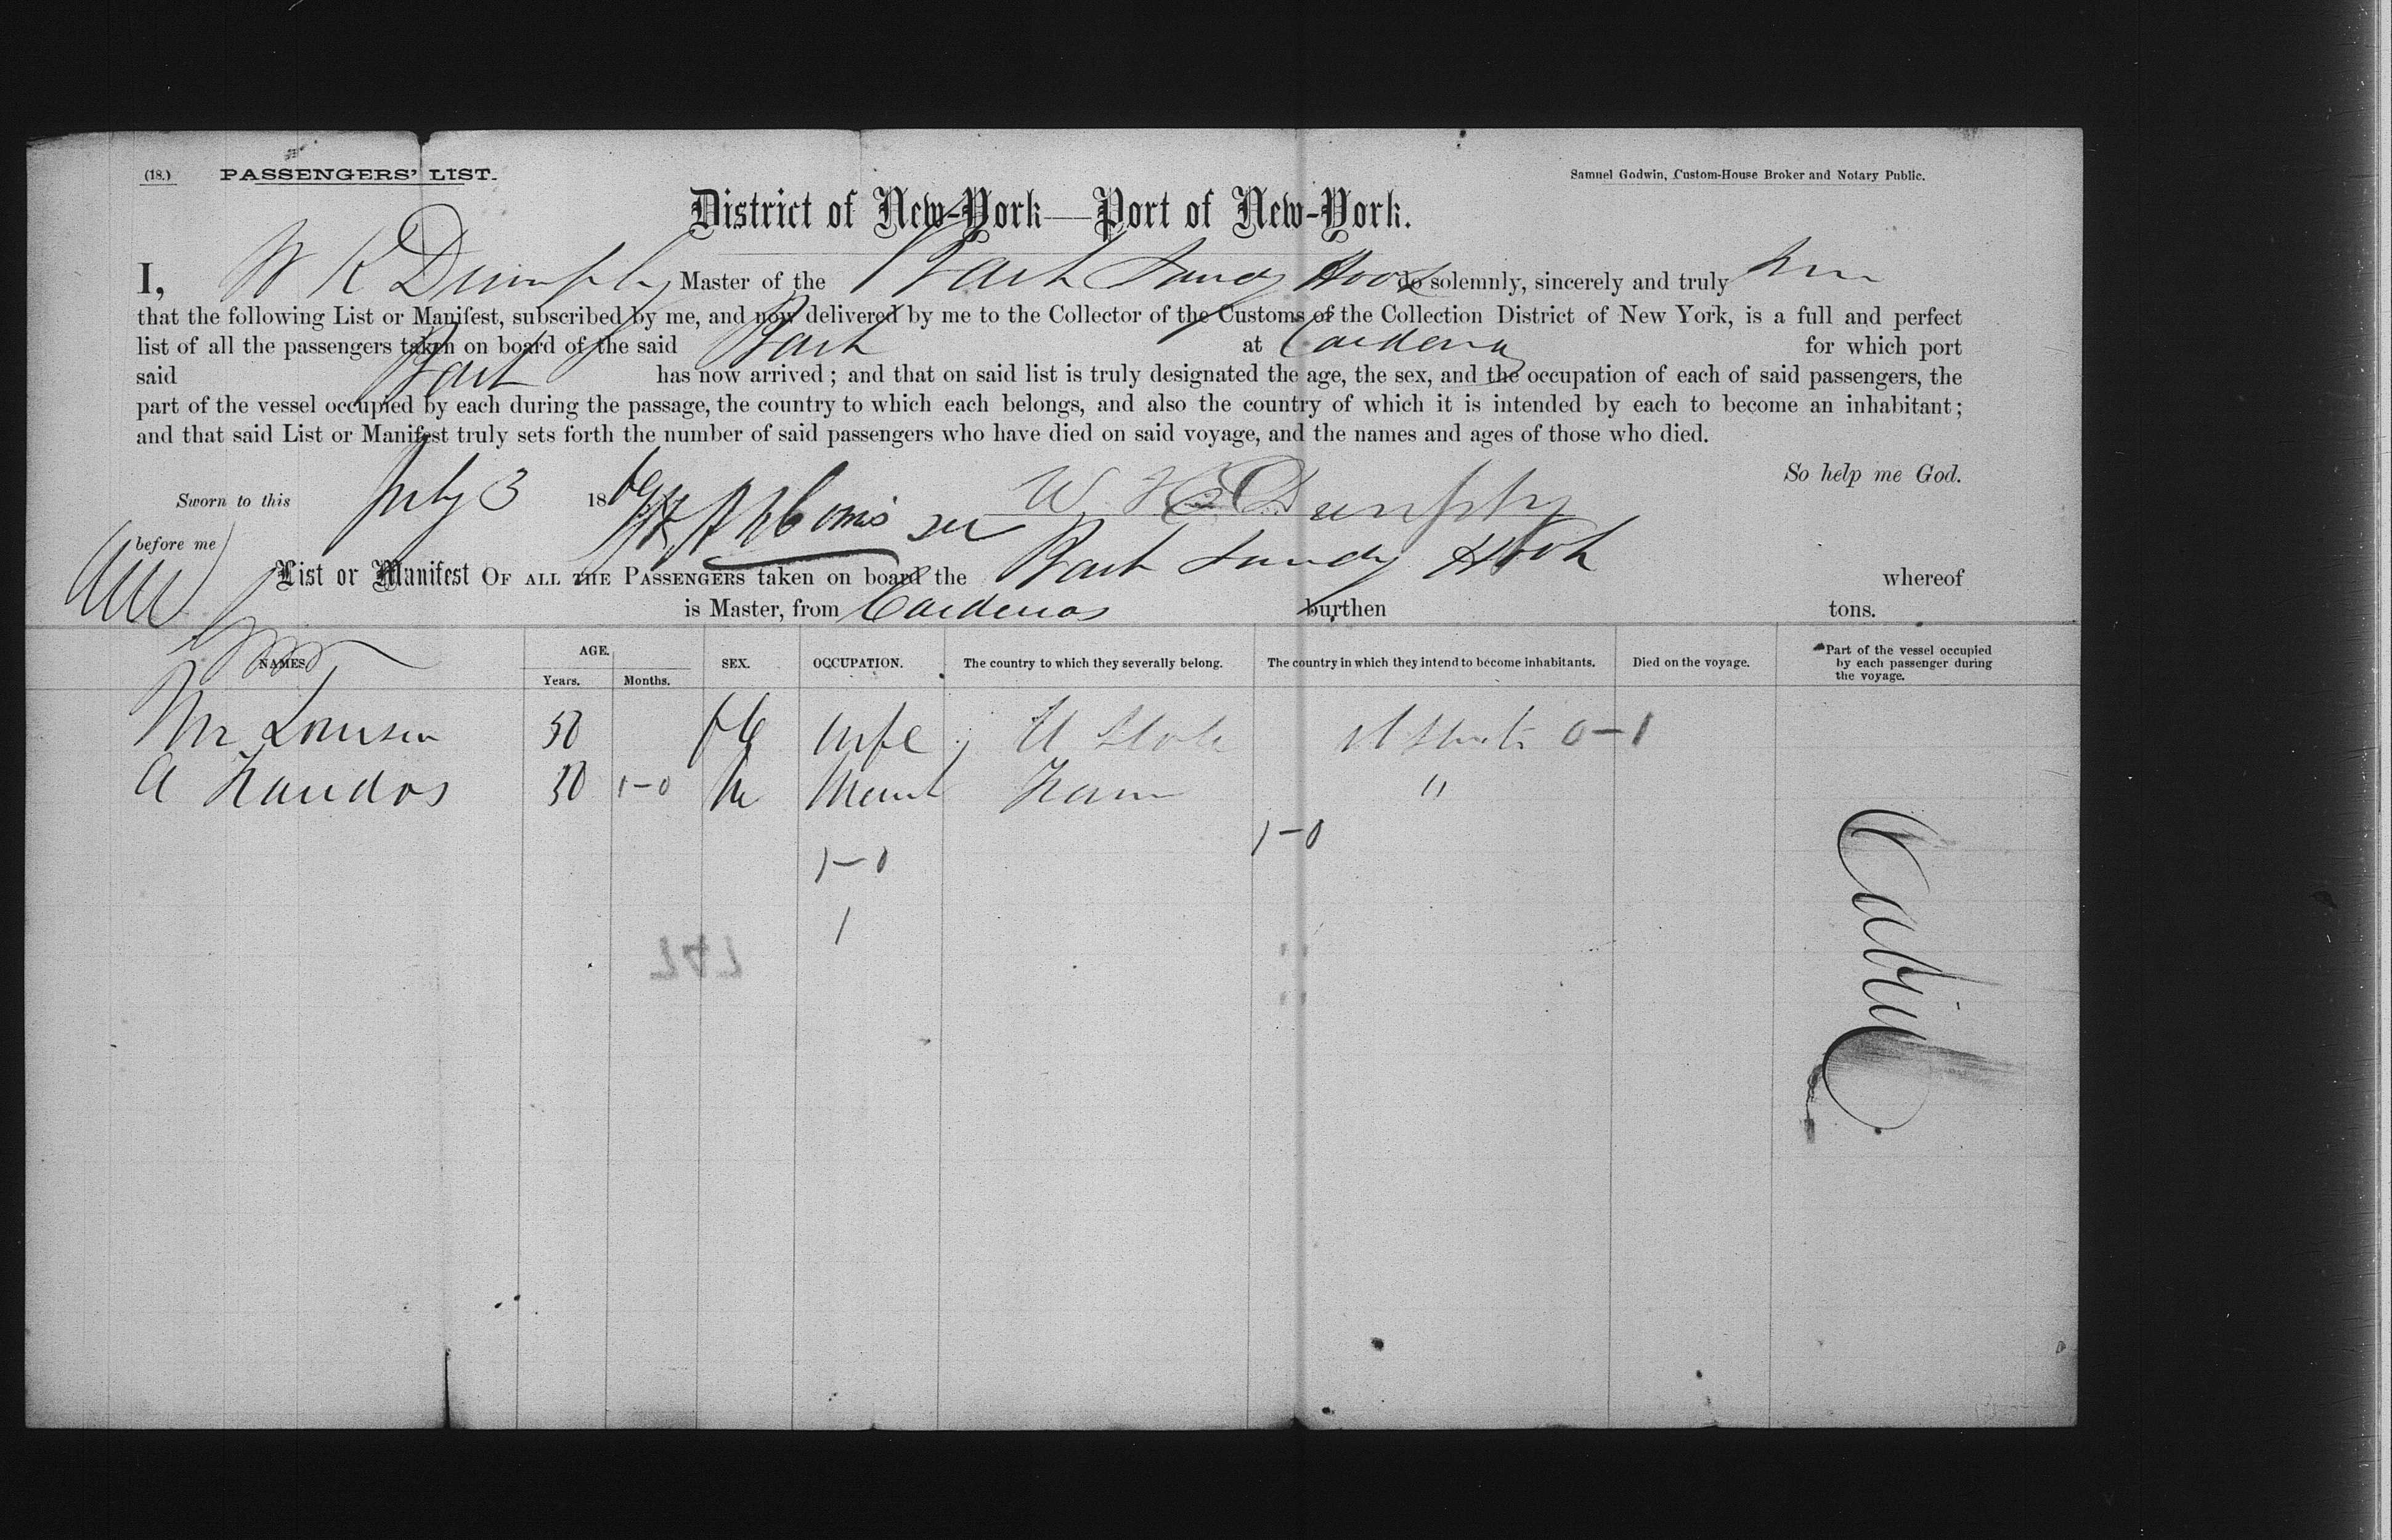 (18.) PASSENGERS' LIST.
Samuel Godwin, Custom-House Broker and Notary Public.
District of New-York—Port of New-York.
I, W K Dunphy Master of the Bark Sandy Hook do solemnly, sincerely and truly
that the following List or Manifest, subscribed by me, and now delivered by me to the Collector of the Customs of the Collection District of New York, is a full and perfect
list of all the passengers taken on board of the said Bark at Cardenas for which port
said Bark has now arrived; and that on said list is truly designated the age, the sex, and the occupation of each of said passengers, the
part of the vessel occupied by each during the passage, the country to which each belongs, and also the country of which it is intended by each to become an inhabitant;
and that said List or Manifest truly sets forth the number of said passengers who have died on said voyage, and the names and ages of those who died.
So help me God.
Sworn to this July 3 1869 W K Dunphy
before me
List or Manifest OF ALL THE PASSENGERS taken on board the Bark Sandy Hook whereof
is Master, from Cardenas burthen tons.
NAMES. AGE. Years. Months. SEX. OCCUPATION. The country to which they severally belong. The country in which they intend to become inhabitants. Died on the voyage. Part of the vessel occupied by each passenger during the voyage.
30 fe wife U State U States 0-1
A 30 1-0 M "
1-0
1-0
1
Cabin